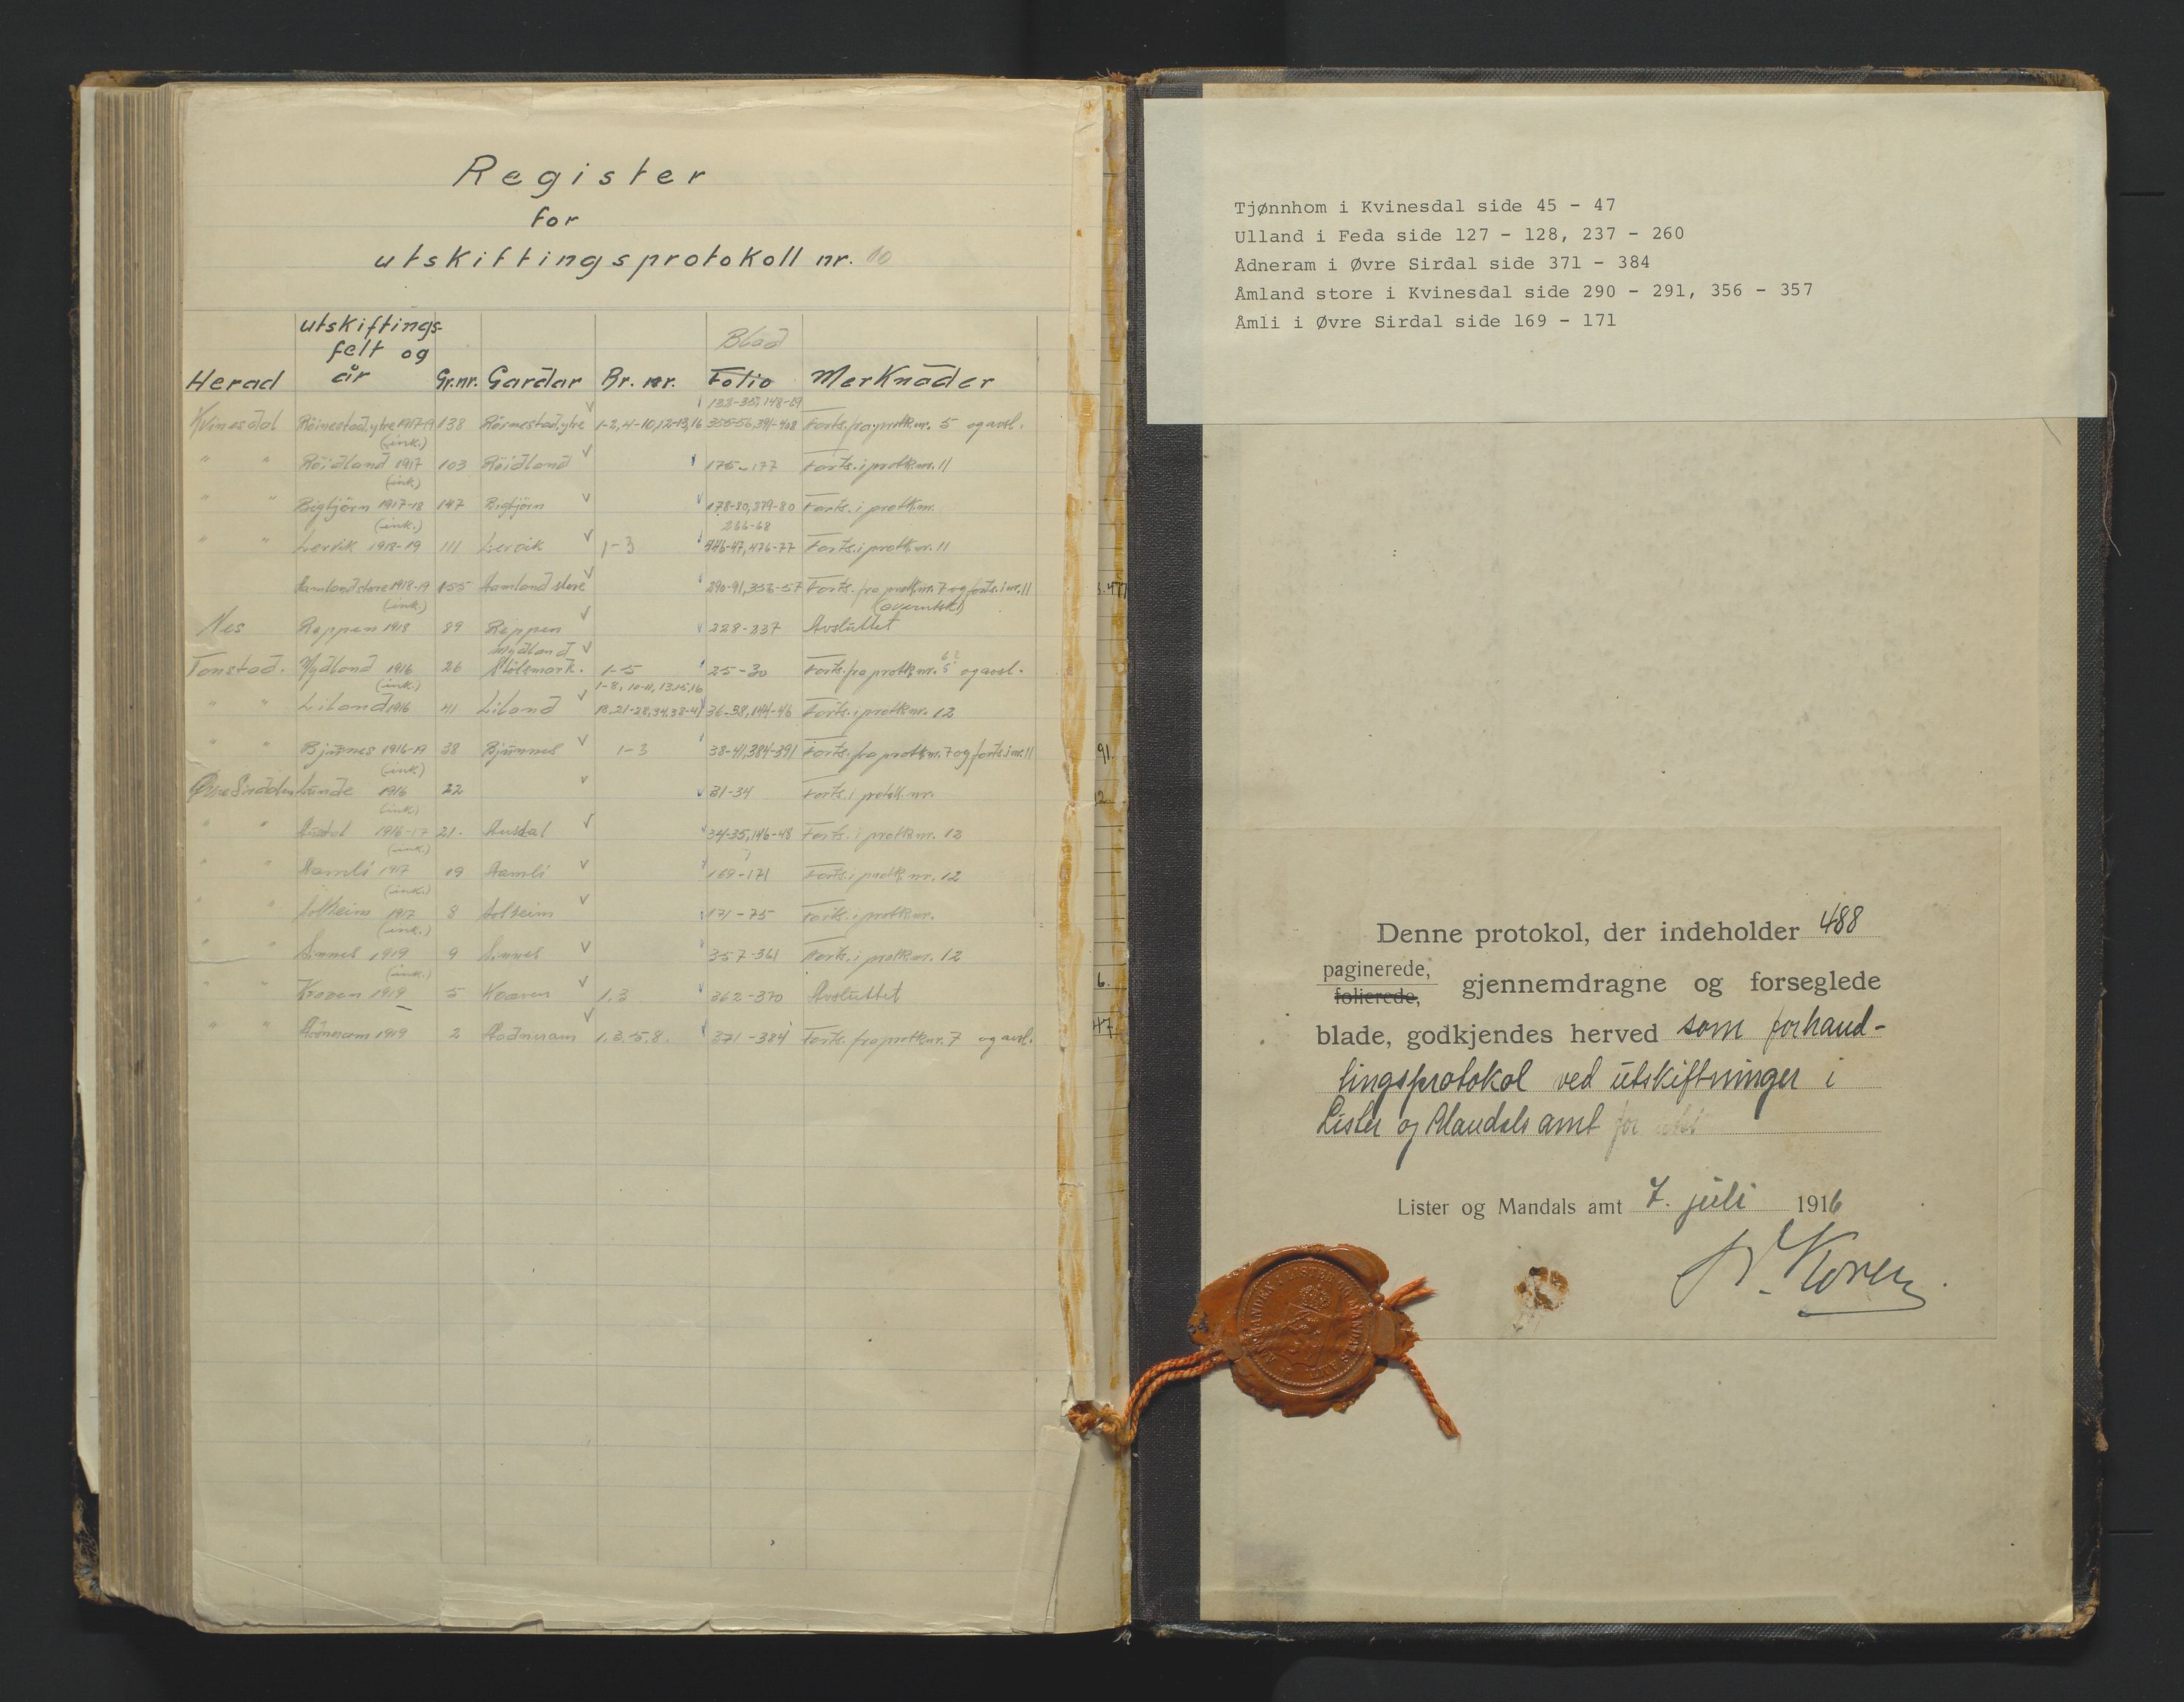 Register
for
utskiftingsprotokoll nr. 10
Herad utskiftings- felt og år Gr.nr. Gardar Br. nr. Blad Folio Merknader
133-35, 148-49
Kvinesdal Röinestad.ytre 1917-19 138 Röinestad.ytre 1-2, 4-10, 12-13, 16 355-56, 391-408 Forts. fra protk.nr. 5 og avsl.
(ink.)
" " Röidland 1917 103 Röidland 175-177 Forts. i protk.nr. 11
(ink)
" " Bigtjörn 1917-18 147 Bigtjörn 178-80, 379-80 Forts. i protk.nr.
(ink.) 266-68
" " Lervik 1918-19 111 Lervik 1-3 446-47, 476-77 Forts. i protk.nr. 11
Aamland store 1918-19 155 Aamland store 290-91, 356-57 Forts. fra protk.nr. 7 og forts. i nr. 11
(ink.)
Nes Reppen 1918 89 Reppen 228-237 Avsluttet
Mydland
Tonstad. Mydland 1916 26 Stölsmark. 1-5 25-30 Forts. fra protk.nr. 5 og avsl.
(ink.) 1-8, 10-11, 13, 15, 16
" " Liland 1916 41 Liland 36-38, 144-46 Forts. i protk.nr. 12
" " Bjunnes 1916-19 38 Bjunnes 1-3 38-41, 384-391 Forts. fra protk.nr. 7 og forts. i nr. 11
(ink)
Øvre Sirdalen Lunde 1916 22 31-34 Forts. i protk.nr.
(ink)
" " Ausdal 1916-17 21. Ausdal 34-35, 146-48 Forts. i protk.nr. 12
(ink.)
" " Aamli 1917 19 Aamli 169-171 Forts. i protk.nr. 12
(ink.)
" " Solheim 1917 8 Solheim 171-75 Forts. i protk.nr.
(ink.)
" " Sinnes 1919 9 Sinnes 357-361 Forts. i protk.nr. 12
(ink.)
" " Kvæven 1919 5 Kvæven 1.3 362-370 Avsluttet
" " Aadneram 1919 2 Aadneram 1.3.5.8. 371-384 Forts. fra protk.nr. 7 og avsl.
Tjønnhom i Kvinesdal side 45 - 47
Ulland i Feda side 127 - 128, 237 - 260
Ådneram i Øvre Sirdal side 371 - 384
Åmland store i Kvinesdal side 290 - 291, 356 - 357
Åmli i Øvre Sirdal side 169 - 171
Denne protokol, der indeholder 488
paginerede,
folierede, gjennemdragne og forseglede
blade, godkjendes herved som forhand-
lingsprotokol ved utskiftninger i
Lister og Mandals amt for
Lister og Mandals amt 7. juli 1916
Koren